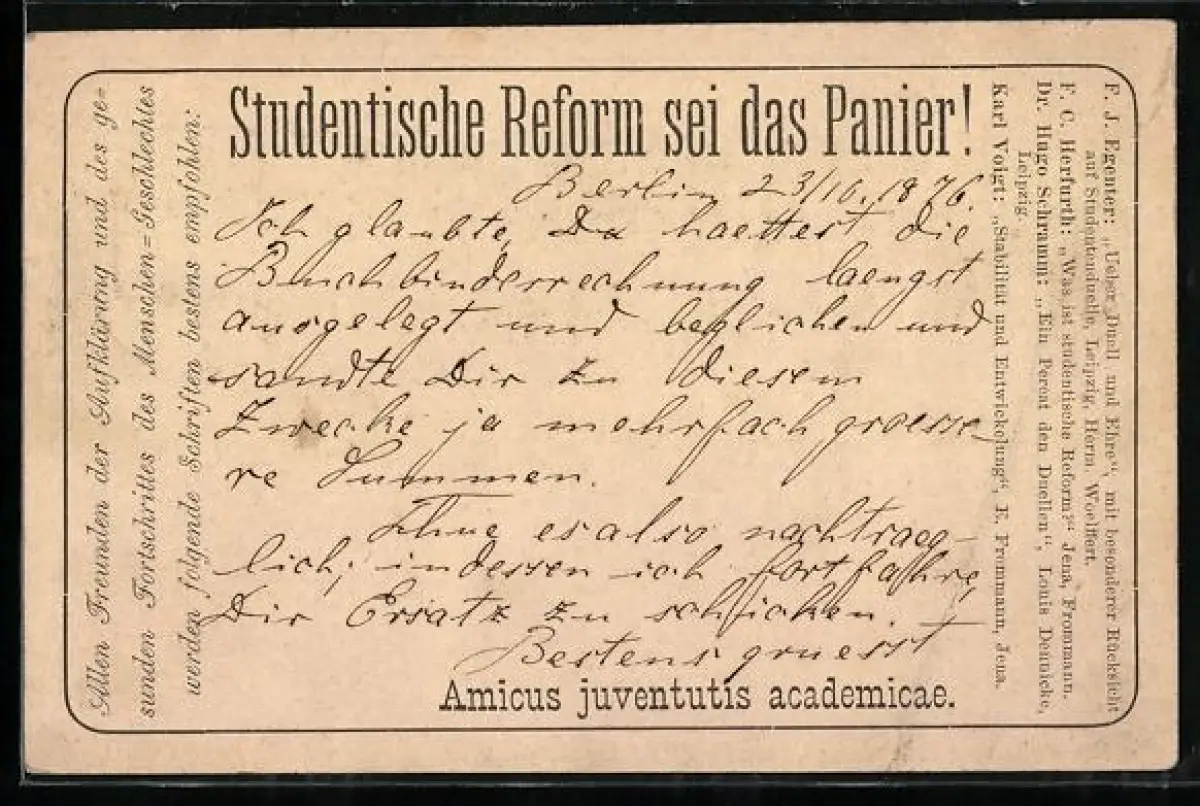 Studentische Reform sei das Panier!
Berlin 23/10. 1876.
Ich glaubte, Du haettest die
Buchbinderrechnung laengst
ausgelegt und beglichen und
sandte Dir zu diesem
Zwecke ja mehrfach groesse-
re Summen.
Thue es also nachtraeg-
lich, indessen ich fortfahre,
Dir Ersatz zu schicken.
Bestens gruesst
Amicus juventutis academicae.
Allen Freunden der Aufklärung und des ge=
sunden Fortschrittes des Menschen=Geschlechtes
werden folgende Schriften bestens empfohlen:
F. J. Egenter: „Ueber Duell und Ehre“, mit besonderer Rücksicht
auf Studentenduelle, Leipzig, Herm. Woelffert.
F. C. Herfurth: „Was ist studentische Reform?“ Jena, Frommann.
Dr. Hugo Schramm: „Ein Pereat den Duellen“, Louis Dennicke,
Leipzig.
Karl Voigt: „Stabilität und Entwickelung“, E. Frommann, Jena.